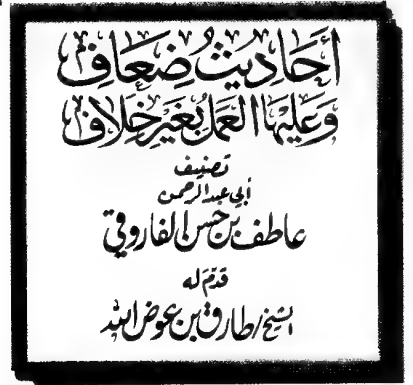 أَحَادِيثُ ضِعَاف
وَعَلَيْهَا العَمَلُ بِغَيْرِ خِلَاف
تصنيف
أبي عبد الرحمن
عاطف بن حسن الفاروقي
قدّم له
الشيخ/ طارق بن عوض الله